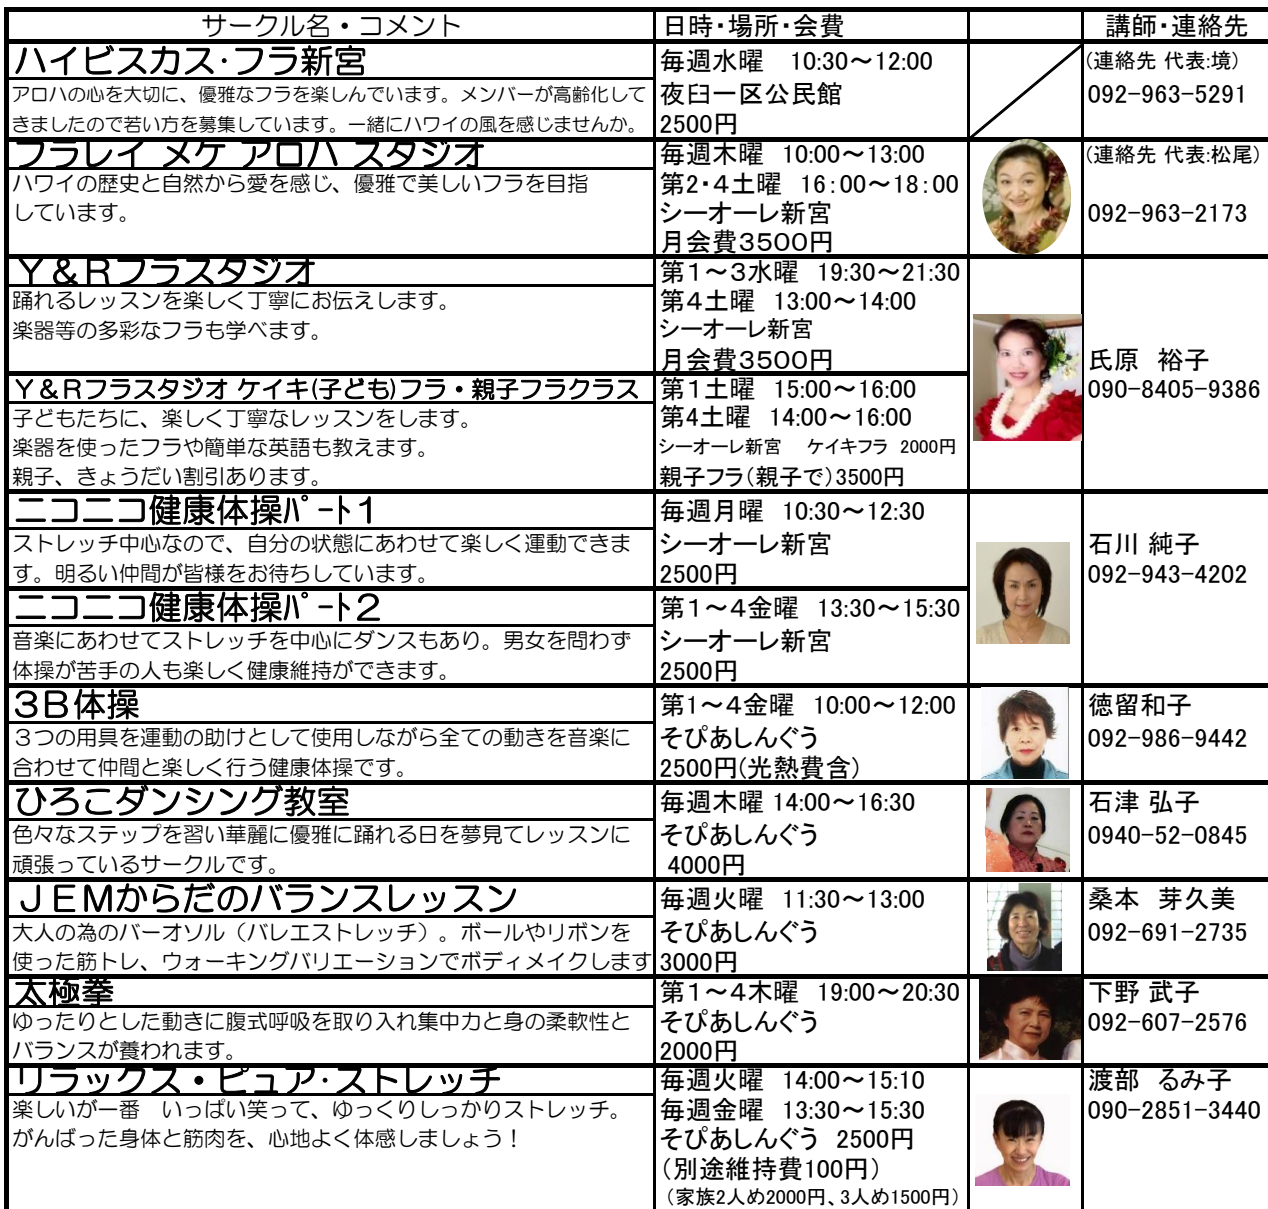 サークル名・コメント 日時・場所・会費 講師・連絡先
ハイビスカス・フラ新宮
アロハの心を大切に、優雅なフラを楽しんでいます。メンバーが高齢化して
きましたので若い方を募集しています。一緒にハワイの風を感じませんか。
毎週水曜 10:30～12:00
夜臼一区公民館
2500円
(連絡先 代表:境)
092-963-5291
フラレイ メケ アロハ スタジオ
ハワイの歴史と自然から愛を感じ、優雅で美しいフラを目指
しています。
毎週木曜 10:00～13:00
第2・4土曜 16:00～18:00
シーオーレ新宮
月会費3500円
(連絡先 代表:松尾)
092-963-2173
Y＆Rフラスタジオ
踊れるレッスンを楽しく丁寧にお伝えします。
楽器等の多彩なフラも学べます。
第1～3水曜 19:30～21:30
第4土曜 13:00～14:00
シーオーレ新宮
月会費3500円
氏原 裕子
090-8405-9386
Y＆Rフラスタジオ ケイキ(子ども)フラ・親子フラクラス
子どもたちに、楽しく丁寧なレッスンをします。
楽器を使ったフラや簡単な英語も教えます。
親子、きょうだい割引あります。
第1土曜 15:00～16:00
第4土曜 14:00～16:00
シーオーレ新宮 ケイキフラ 2000円
親子フラ(親子で)3500円
ニコニコ健康体操ﾊﾟｰﾄ1
ストレッチ中心なので、自分の状態にあわせて楽しく運動できま
す。明るい仲間が皆様をお待ちしています。
毎週月曜 10:30～12:30
シーオーレ新宮
2500円
石川 純子
092-943-4202
ニコニコ健康体操ﾊﾟｰﾄ2
音楽にあわせてストレッチを中心にダンスもあり。男女を問わず
体操が苦手の人も楽しく健康維持ができます。
第1～4金曜 13:30～15:30
シーオーレ新宮
2500円
3B体操
3つの用具を運動の助けとして使用しながら全ての動きを音楽に
合わせて仲間と楽しく行う健康体操です。
第1～4金曜 10:00～12:00
そぴあしんぐう
2500円(光熱費含)
徳留和子
092-986-9442
ひろこダンシング教室
色々なステップを習い華麗に優雅に踊れる日を夢見てレッスンに
頑張っているサークルです。
毎週木曜 14:00～16:30
そぴあしんぐう
4000円
石津 弘子
0940-52-0845
JEMからだのバランスレッスン
大人の為のバーオソル（バレエストレッチ）。ボールやリボンを
使った筋トレ、ウォーキングバリエーションでボディメイクします
毎週火曜 11:30～13:00
そぴあしんぐう
3000円
桑本 芽久美
092-691-2735
太極拳
ゆったりとした動きに腹式呼吸を取り入れ集中力と身の柔軟性と
バランスが養われます。
第1～4木曜 19:00～20:30
そぴあしんぐう
2000円
下野 武子
092-607-2576
リラックス・ピュア・ストレッチ
楽しいが一番 いっぱい笑って、ゆっくりしっかりストレッチ。
がんばった身体と筋肉を、心地よく体感しましょう！
毎週火曜 14:00～15:10
毎週金曜 13:30～15:30
そぴあしんぐう 2500円
(別途維持費100円)
(家族2人め2000円、3人め1500円)
渡部 るみ子
090-2851-3440